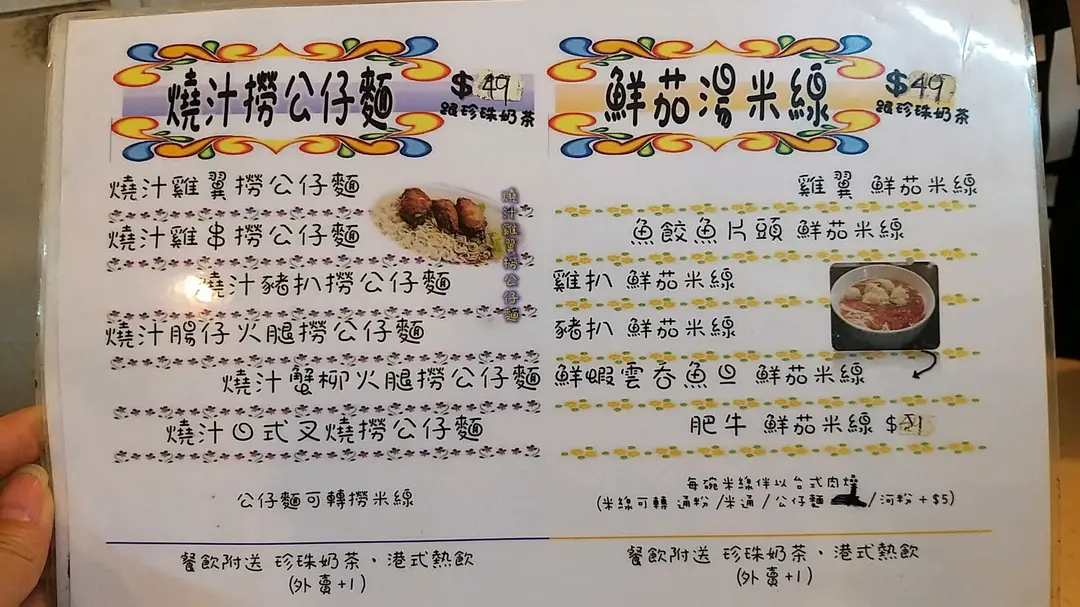 燒汁撈公仔麵
$49
跟珍珠奶茶
燒汁雞翼撈公仔麵
燒汁雞串撈公仔麵
燒汁豬扒撈公仔麵
燒汁腸仔火腿撈公仔麵
燒汁蟹柳火腿撈公仔麵
燒汁日式叉燒撈公仔麵
燒汁雞翼撈公仔麵
公仔麵可轉撈米線
餐飲附送 珍珠奶茶、港式熱飲
(外賣+1)
鮮茄湯米線
$49
跟珍珠奶茶
雞翼 鮮茄米線
魚餃魚片頭 鮮茄米線
雞扒 鮮茄米線
豬扒 鮮茄米線
鮮蝦雲吞魚旦 鮮茄米線
肥牛 鮮茄米線 $51
每碗米線伴以台式肉燥
(米線可轉 通粉/米通/公仔麵 /河粉 +$5)
餐飲附送 珍珠奶茶、港式熱飲
(外賣+1)